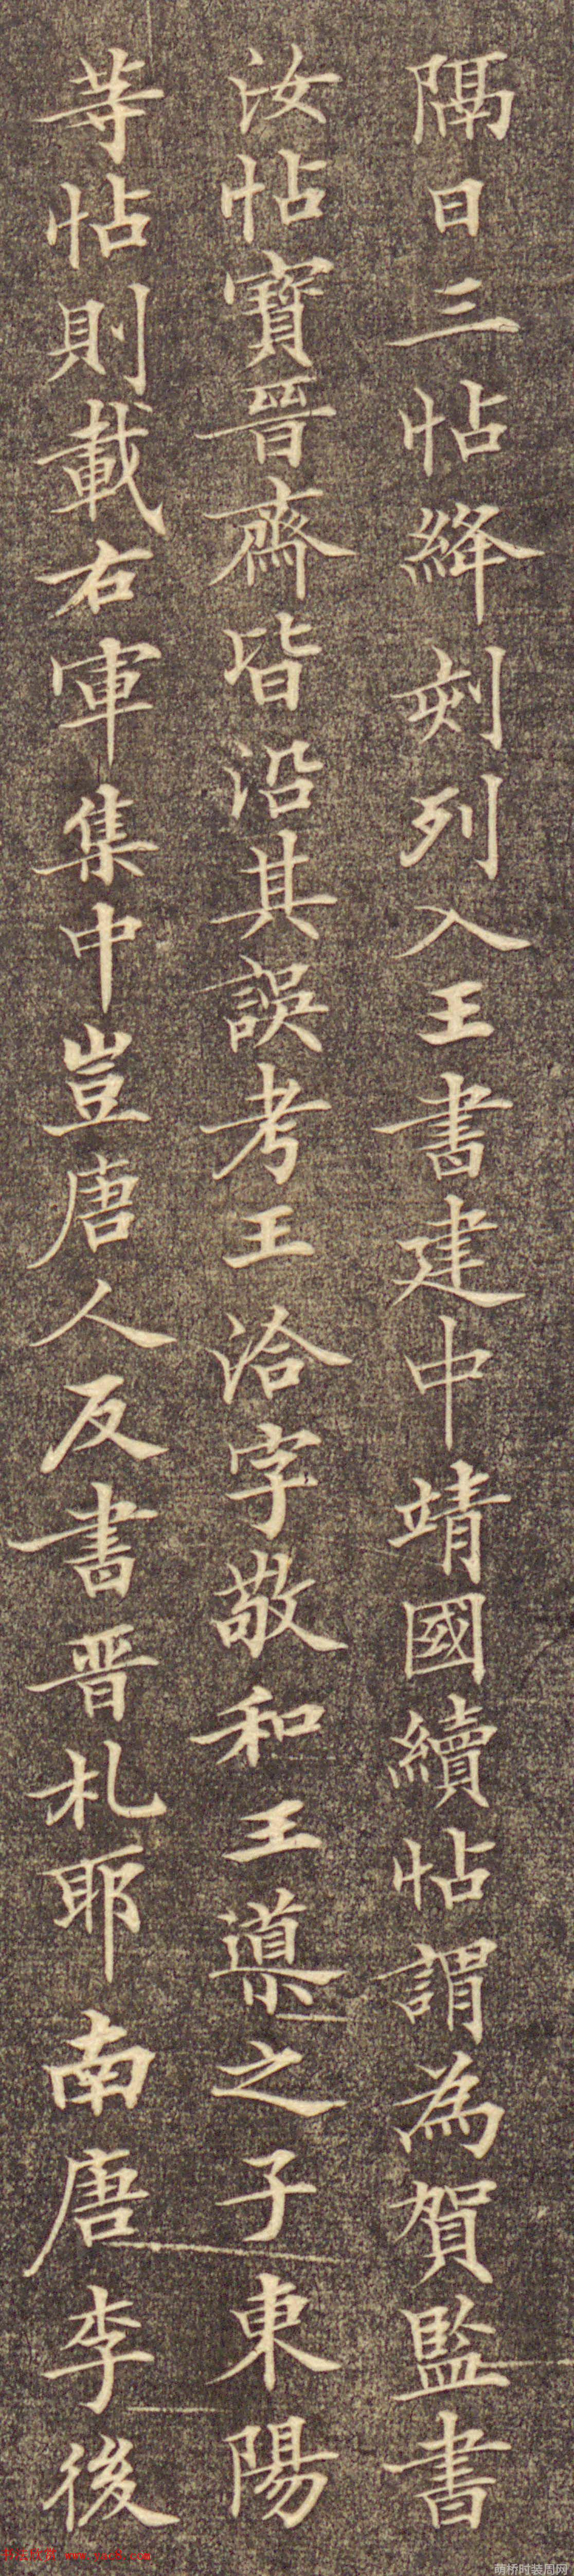 隔日三帖絳刻列入王書建中靖國續帖謂為賀監書
汝帖寶晉齋皆沿其誤考王洽字敬和王導之子東陽
等帖則載右軍集中豈唐人反書晉札耶南唐李後
萌桥时装周网